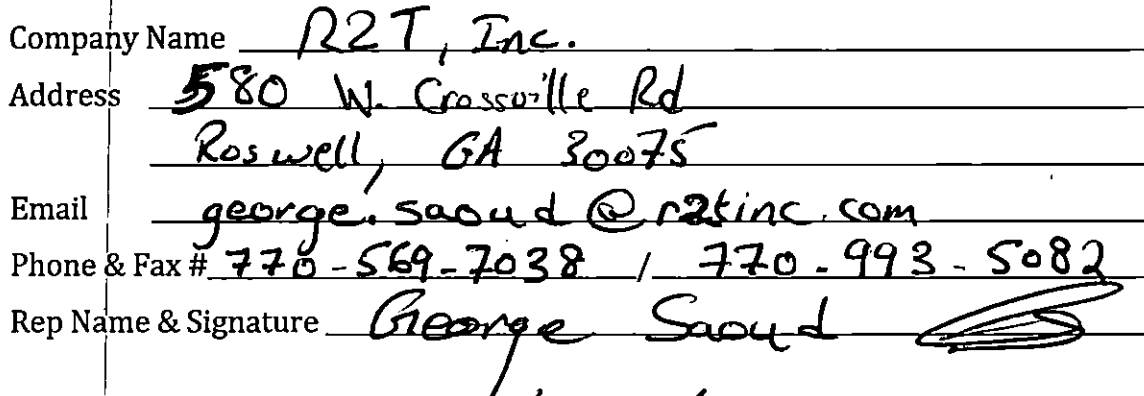 Company Name R2T, Inc.
Address 580 W. Crossville Rd
Roswell, GA 30075
Email george.saoud@r2tinc.com
Phone & Fax # 770-569-7038 / 770-993-5082
Rep Name & Signature George Saoud